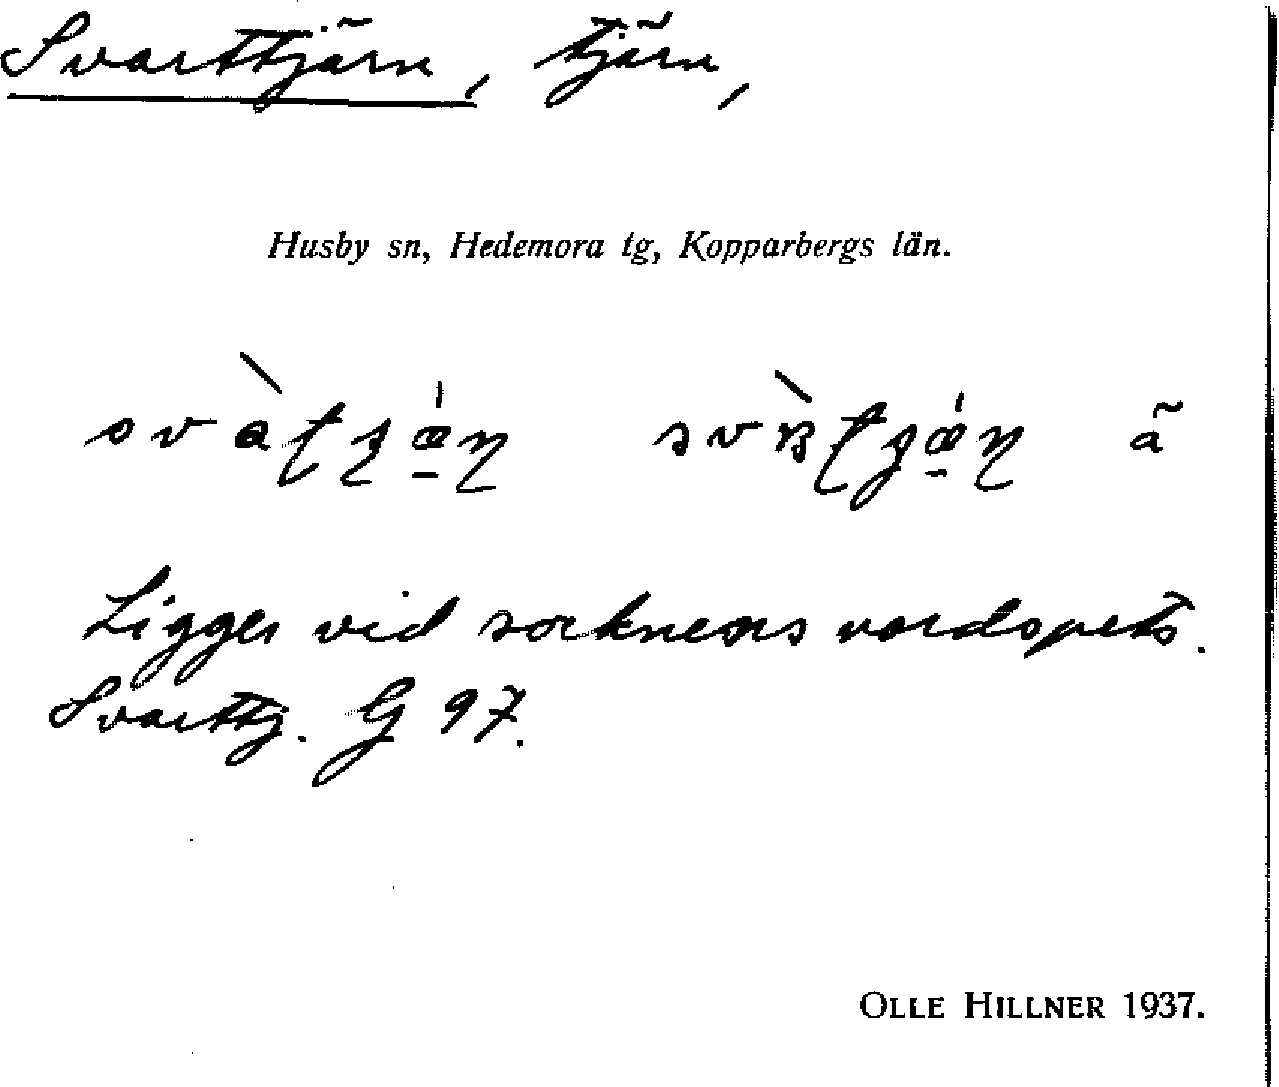 Svarttjärn, tjärn,
Husby sn, Hedemora tg, Kopparbergs län.
ã
Ligger vid socknens nordspets.
Svarttj. G 97.
OLLE HILLNER 1937.